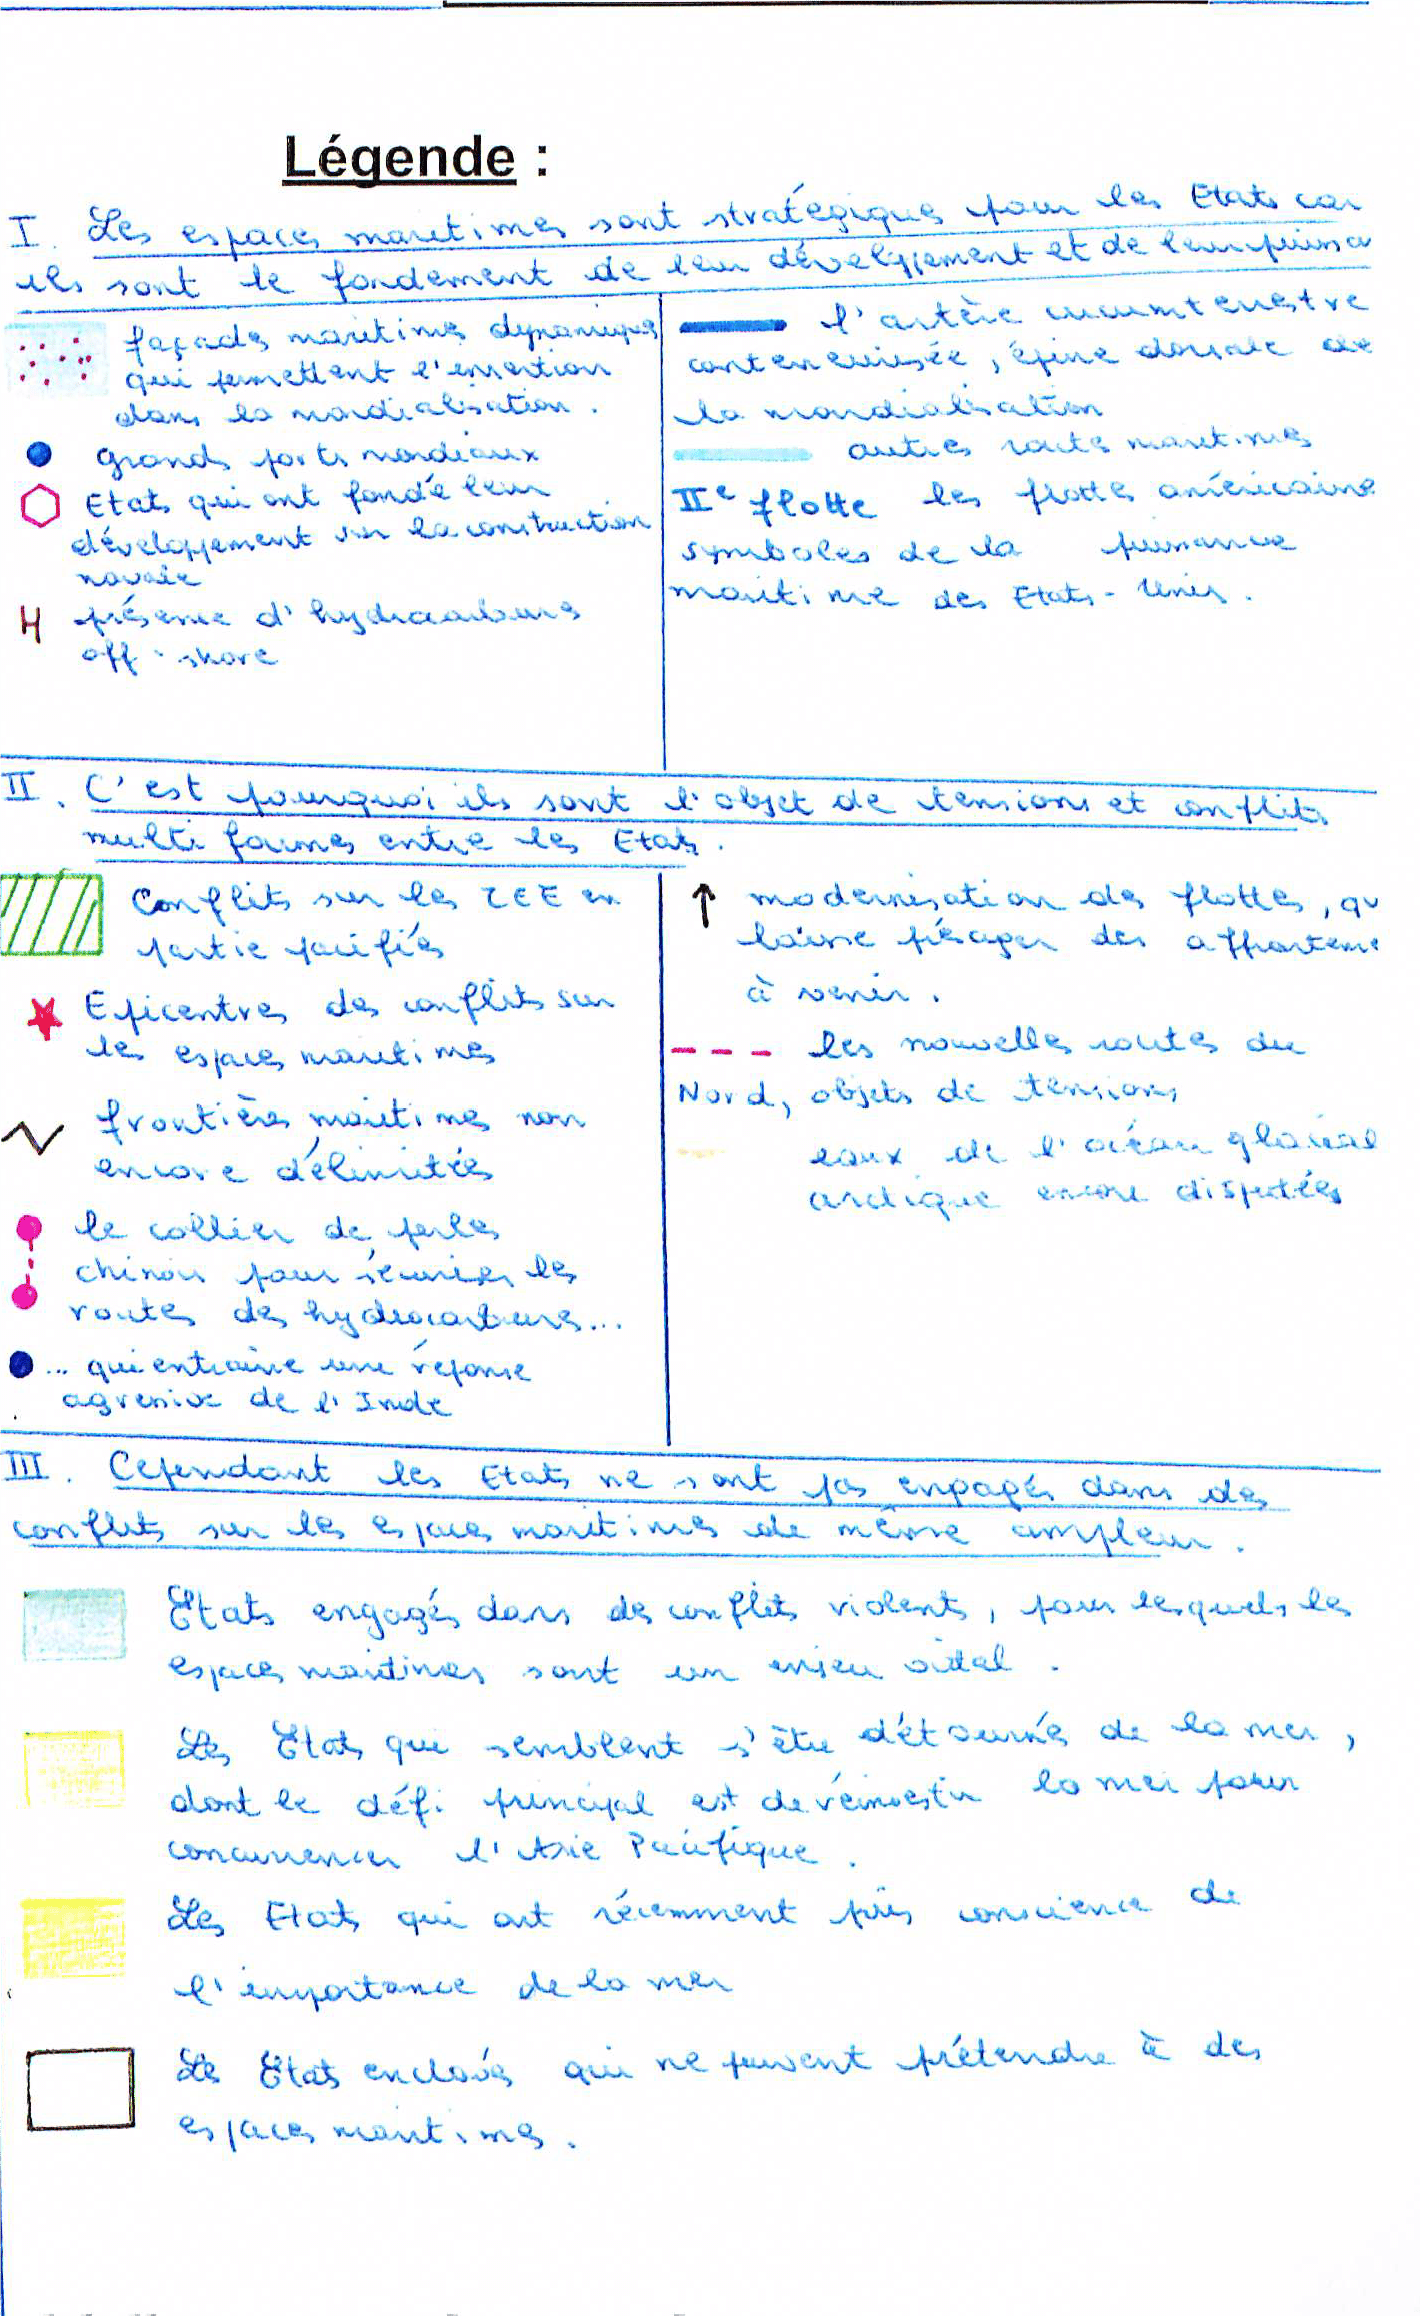 Légende :
I. Les espaces maritimes sont stratégiques pour les Etats car
ils sont le fondement de leur développement et de leur puissa
façades maritimes dynamiques
qui permettent l'insertion
dans la mondialisation.
grands ports mondiaux
Etats qui ont fondé leur
développement sur la construction
navale
H présence d'hydrocarbures
off-shore
l'artère circumterrestre
conteneurisée, épine dorsale de
la mondialisation
autres routes maritimes
IIe flotte les flottes américaines
symboles de la puissance
maritime des Etats-Unis.
II. C'est pourquoi ils sont l'objet de tensions et conflits
multi formes entre les Etats.
Conflits sur les ZEE en
partie pacifiés
Epicentres des conflits sur
les espaces maritimes
frontières maritimes non
encore délimitées
le collier de perles
chinois pour sécuriser les
routes des hydrocarbures...
... qui entraine une réponse
agressive de l'Inde
modernisation des flottes, qu
laisse présager des affronteme
à venir.
les nouvelles routes du
Nord, objets de tensions
eaux de l'océan glacial
arctique encore disputées
III. Cependant les Etats ne sont pas engagés dans des
conflits sur les espaces maritimes de même ampleur.
Etats engagés dans des conflits violents, pour lesquels les
espaces maritimes sont un enjeu vital.
Les Etats qui semblent s'être détournés de la mer,
dont le défi principal est de réinvestir la mer pour
concurrencer l'Asie Pacifique.
Les Etats qui ont récemment pris conscience de
l'importance de la mer
Les Etats enclavés qui ne peuvent prétendre à des
espaces maritimes.